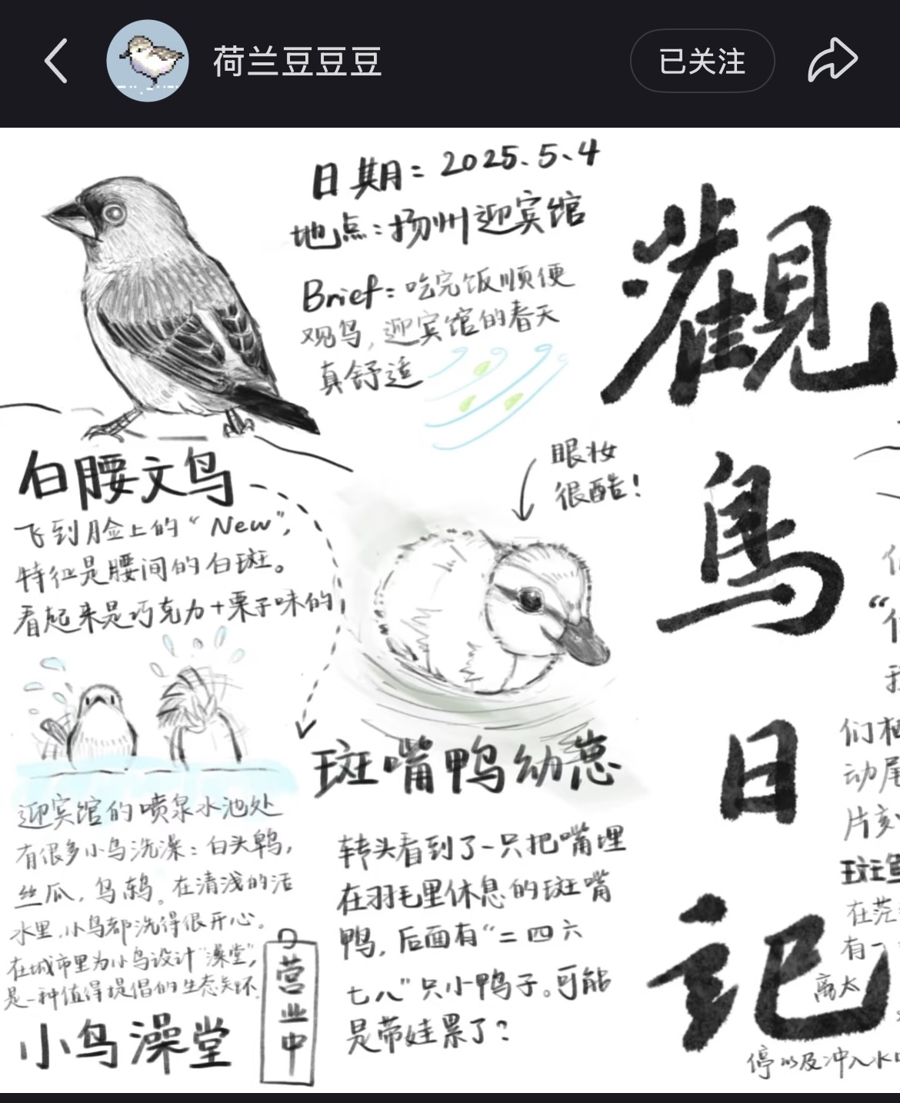 荷兰豆豆豆
已关注
日期：2025.5.4
地点：扬州迎宾馆
Brief：吃完饭顺便
观鸟，迎宾馆的春天
真舒适
觀
鸟
日
記
白腰文鸟
飞到脸上的“New”，
特征是腰间的白斑。
看起来是巧克力+栗子味的
眼妆
很酷！
斑嘴鸭幼崽
转头看到了一只把嘴埋
在羽毛里休息的斑嘴
鸭，后面有“二四六
七八”只小鸭子。可能
是带娃累了？
迎宾馆的喷泉水池处
有很多小鸟洗澡：白头鹎，
丝瓜，乌鸫。在清浅的活
水里，小鸟都洗得很开心。
在城市里为小鸟设计“澡堂”，
是一种值得提倡的生态
小鸟澡堂
营业中
们
动尾
片刻
在茫
高太
停以及冲入水